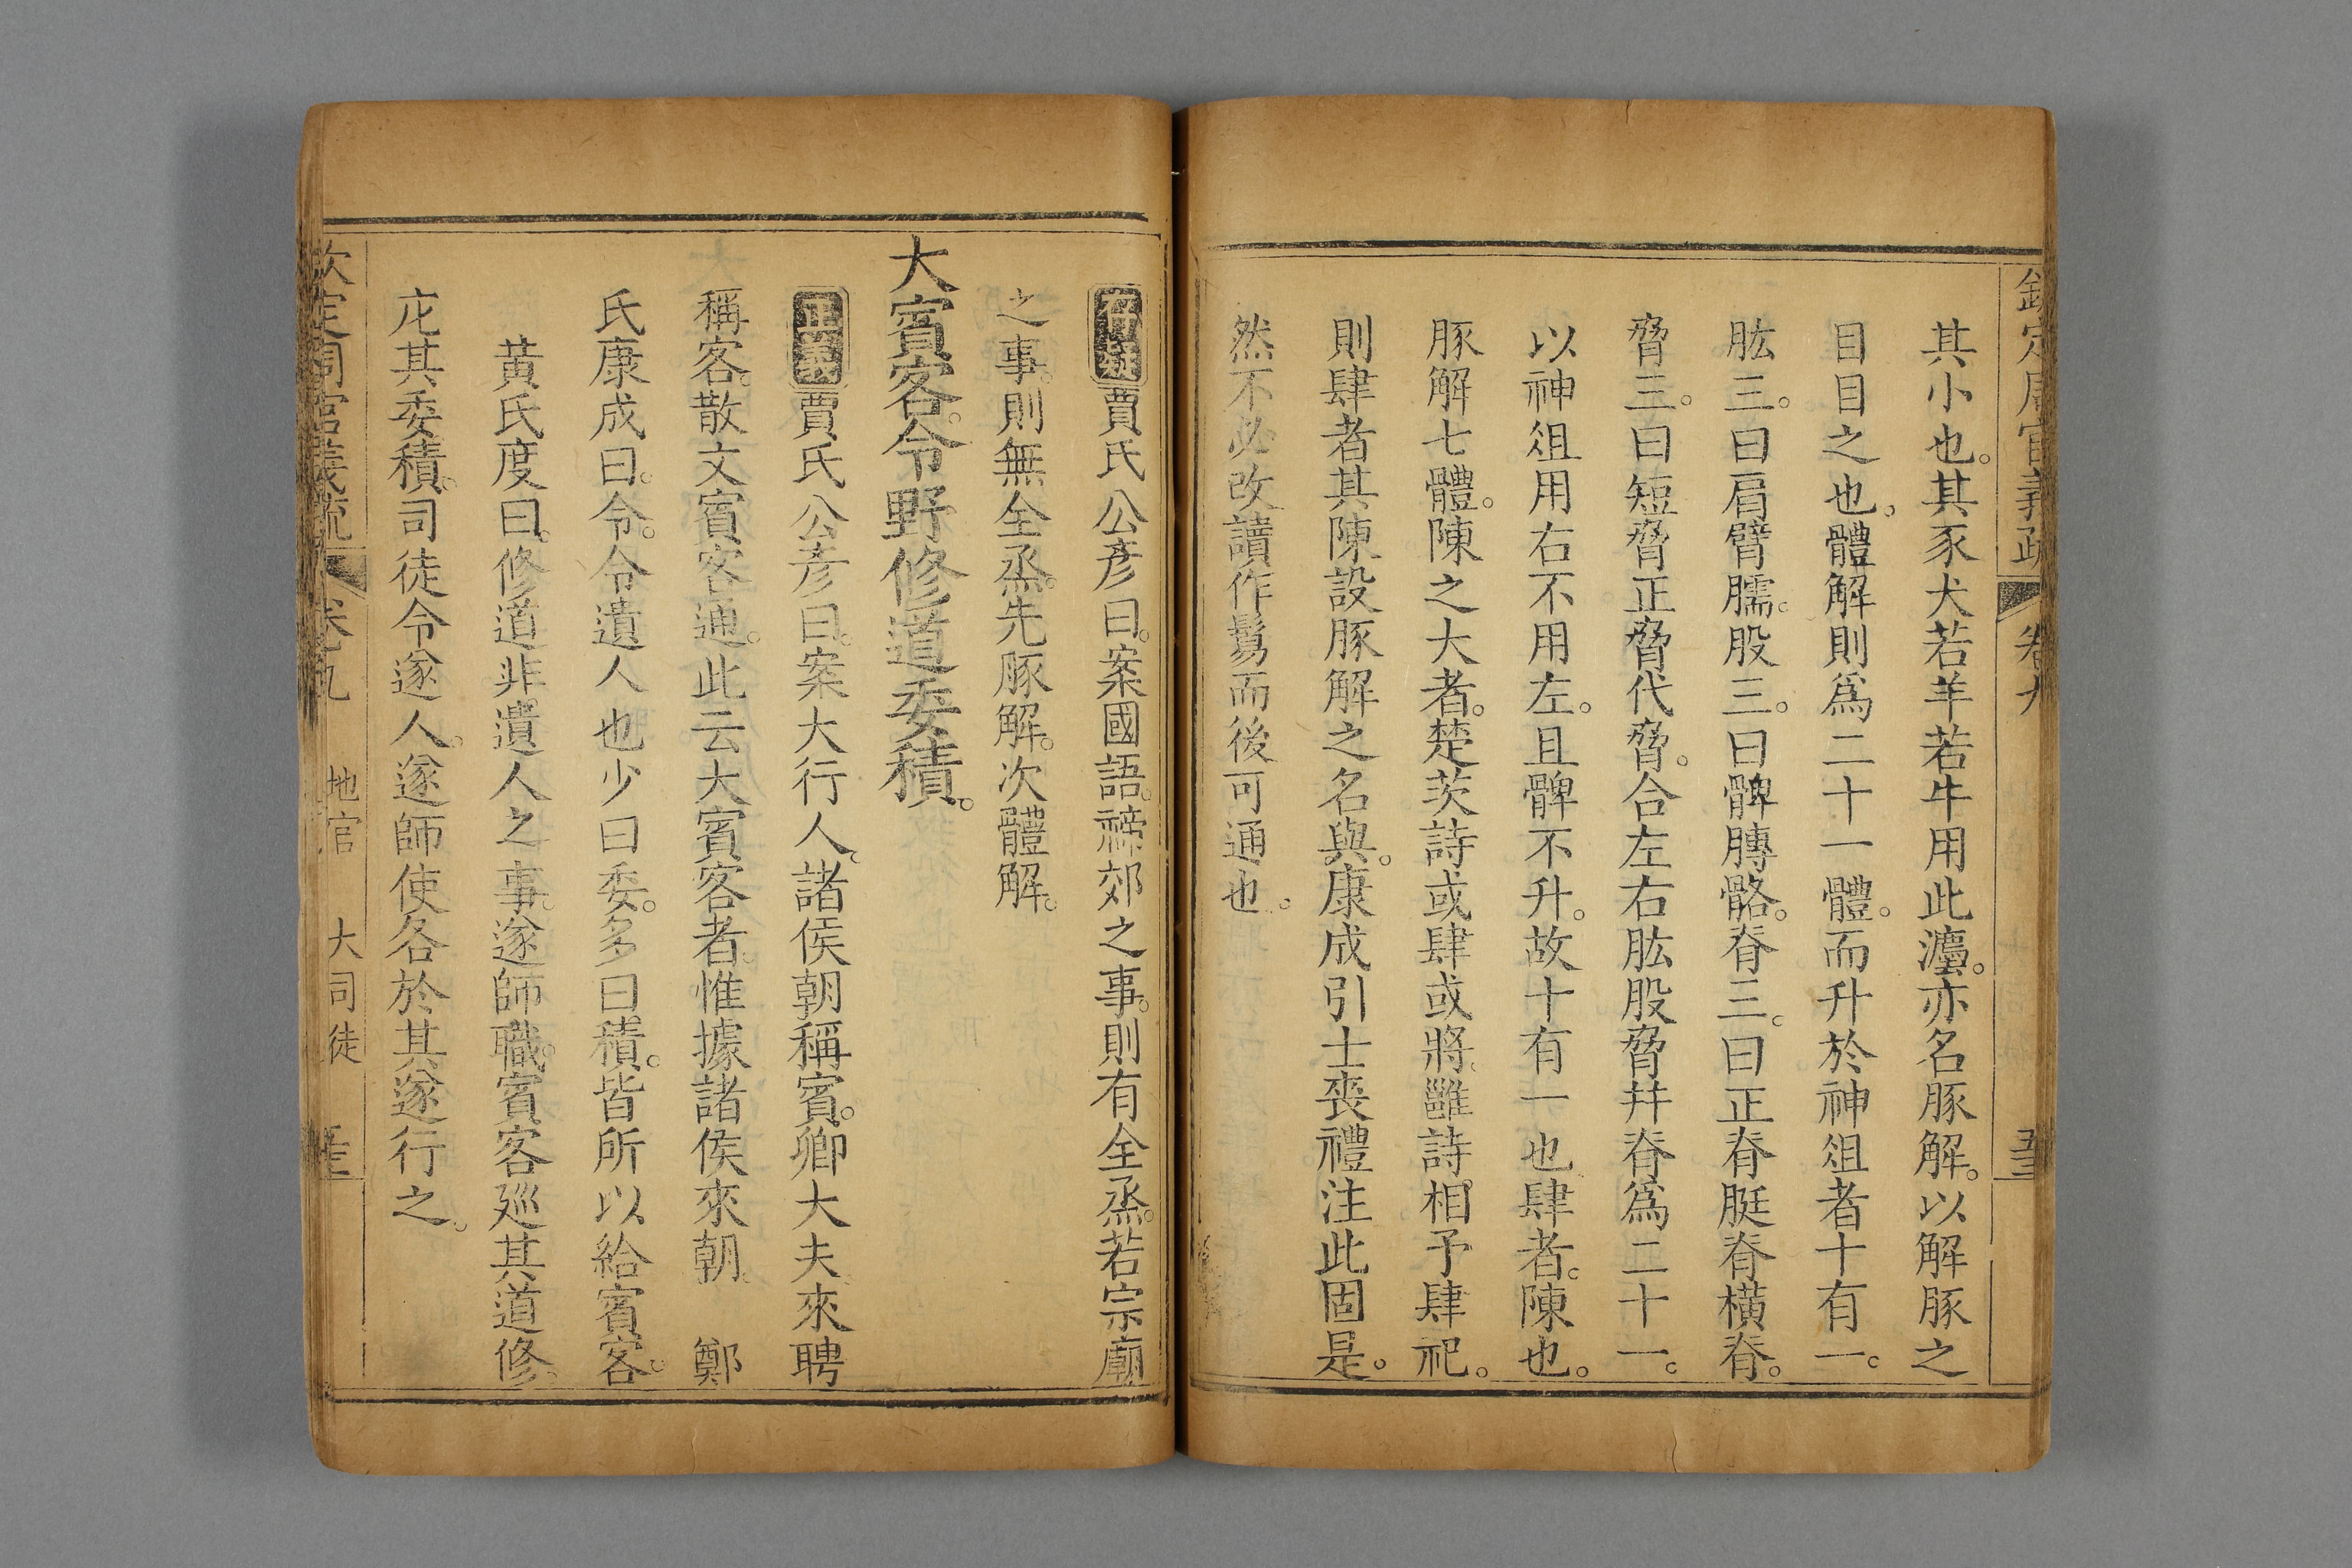 欽定周官義疏 卷九 五三
其小也。其豕犬若羊若牛用此灋。亦名豚解。以解豚之
目目之也。體解則爲二十一體。而升於神俎者十有一。
肱三。曰肩臂臑。股三。曰髀膊骼。脊三。曰正脊脡脊橫脊。
脅三。曰短脅正脅代脅。合左右肱股脅幷脊爲二十一。
以神俎用右不用左。且髀不升。故十有一也肆者。陳也。
豚解七體。陳之大者。楚茨詩或肆或將。雝詩。相予肆祀。
則肆者其陳設豚解之名與。康成引士喪禮注此固是。
然不必改讀作鬄而後可通也。
存疑 賈氏公彥曰。案國語。禘郊之事。則有全烝。若宗廟
之事。則無全烝。先豚解。次體解。
大賓客。令野修道委積。
正義 賈氏公彥曰。案大行人。諸侯朝稱賓。卿大夫來聘
稱客。散文賓客通。此云大賓客者。惟據諸侯來朝。 鄭
氏康成曰。令。令遺人也少曰委。多曰積。皆所以給賓客。
黃氏度曰。修道非遺人之事。遂師職。賓客廵其道修。
庀其委積。司徒令遂人。遂師使各於其遂行之。
欽定周官義疏 卷九 地官 大司徒